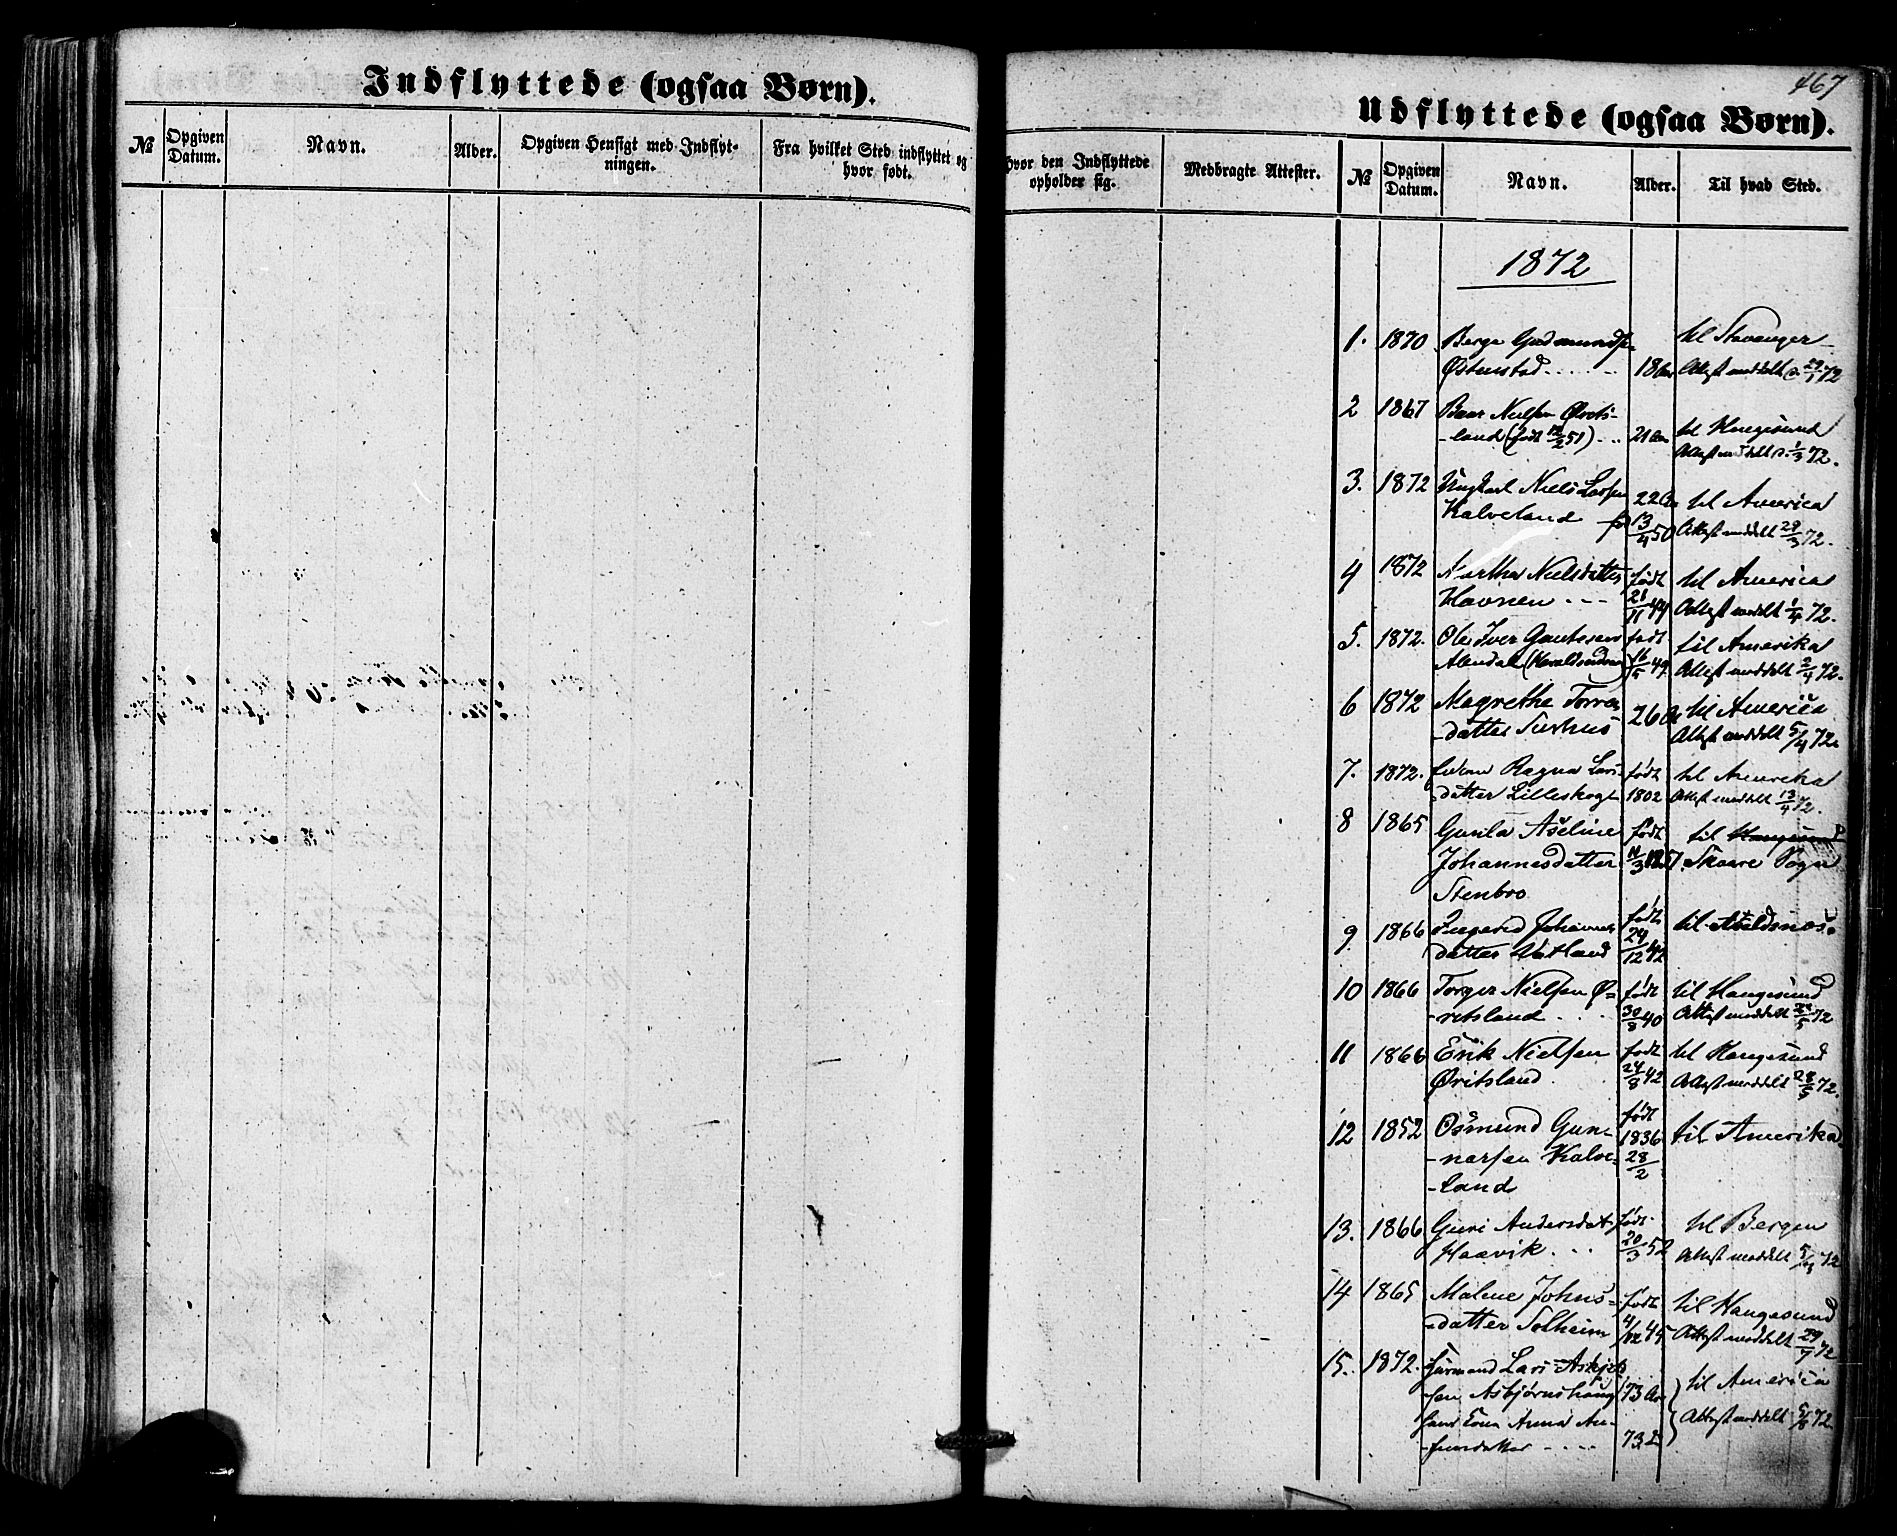 Indflyttede (ogsaa Børn).
No
Opgiven Datum.
Navn.
Alder.
Opgiven Hensigt med Indflyt-
ningen.
Fra hvilket Sted indflyttet og
hvor født.
467
Udflyttede (ogsaa Børn).
hvor den Indflyttede
opholder sig.
Medbragte Attester.
No
Opgiven Datum.
Navn.
Alder.
Til hvad Sted.
1872
1. 1870 Berge Gudmunds
til Stavanger
18 Attest meddelt 72
2 1867 Nielsen
til Haugesund
-land (født 12/2 51) 21
Attest meddelt 1/3 72.
3. 1872 Ungkarl Niels Larsen 22 til America
Kalveland 13/4 50 Attest meddelt 29/3 72.
4 1872 Martha Nielsdatter født til America
Havnen 21/11 44 Attest meddelt 1/4 72.
5. 1872. Ole Iver født til Amerika
49 Attest meddelt 2/4 72.
6 1872 Magrethe 26 til America
datter Attest meddelt 5/4 72.
7. 1872. Ragna Lars- født til Amerika
datter Lilleskog 1802 Attest meddelt 13/4 72.
8 1865 Gunla Aseline født til Haugesund
Johannesdatter 11/3 Skaare Sogn
Stenbro
9 1866 Ingerid Johannes født til
datter 24/12 42
10 1866 Torger Nielsen Ø= født til Haugesund
-ritsland 30/8 40 Attest meddelt 72
11 1866 Erik Nielsen født til Haugesund
Øritsland 24/8 42 Attest meddelt 28/5 72.
12 1852 Osmund Gun- født til Amerika
-narsen Kalve- 1836
-land 28/2
13. 1866 Guri Andersdat født til Bergen
Haavik 20/3 52 Attest meddelt 72
14 1865 Malene Johns- født til Haugesund
datter Solheim 4/12 45 Attest meddelt 29/7 72
15. 1872. Lars
-sen Asbjørnshaug 73 til America
hans Kone Anna Attest meddelt 5/8 72
datter 73